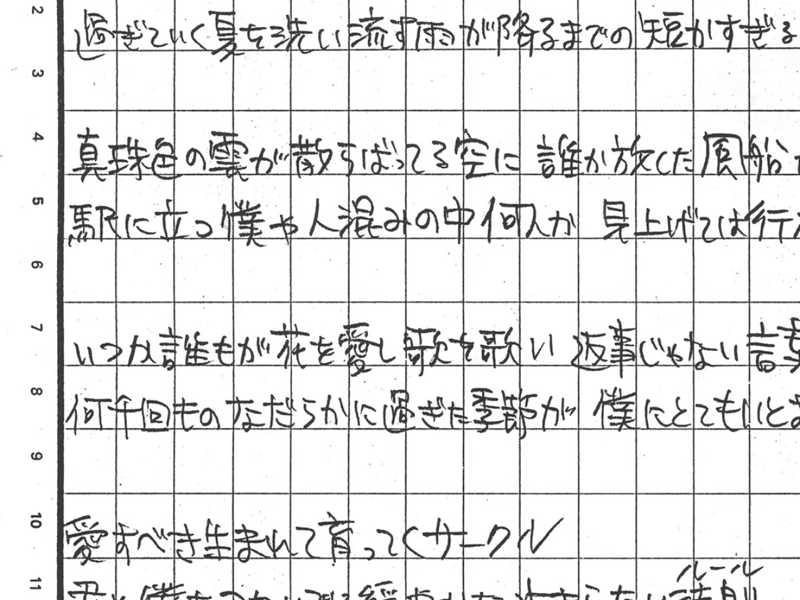 2 過ぎていく夏を洗い流す雨が降るまでの短かすぎる
3
4 真珠色の雲が散らばってる空に 誰か放した風船が
5 駅に立つ僕や人混みの中何人か 見上げては行
6
7 いつか誰もが花を愛し歌を歌い 返事じゃない言葉
8 何千回ものなだらかに過ぎた季節が 僕にとてもいとお
9
10 愛すべき生まれて育ってくサークル
ルール
11 君や僕をつないでる緩やかな止まらない法則